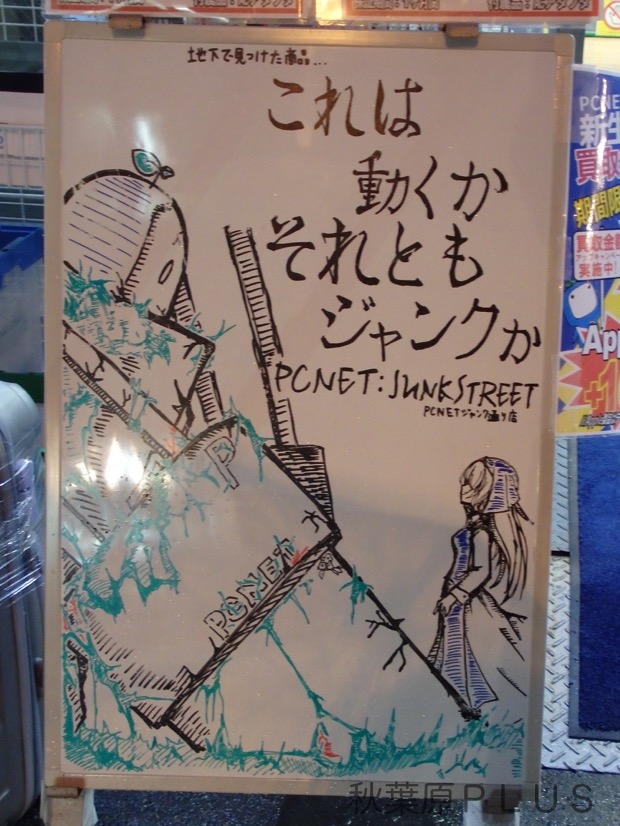 地下で見つけた商品...
これは
動くか
それとも
ジャンクか
PCNET:JUNKSTREET
PCNETジャンク通り店
P
PCNET
PCNE
新生
買取
期間限
買取金額
アップキャンペーン
実施中!
App
+1
秋葉原PLUS